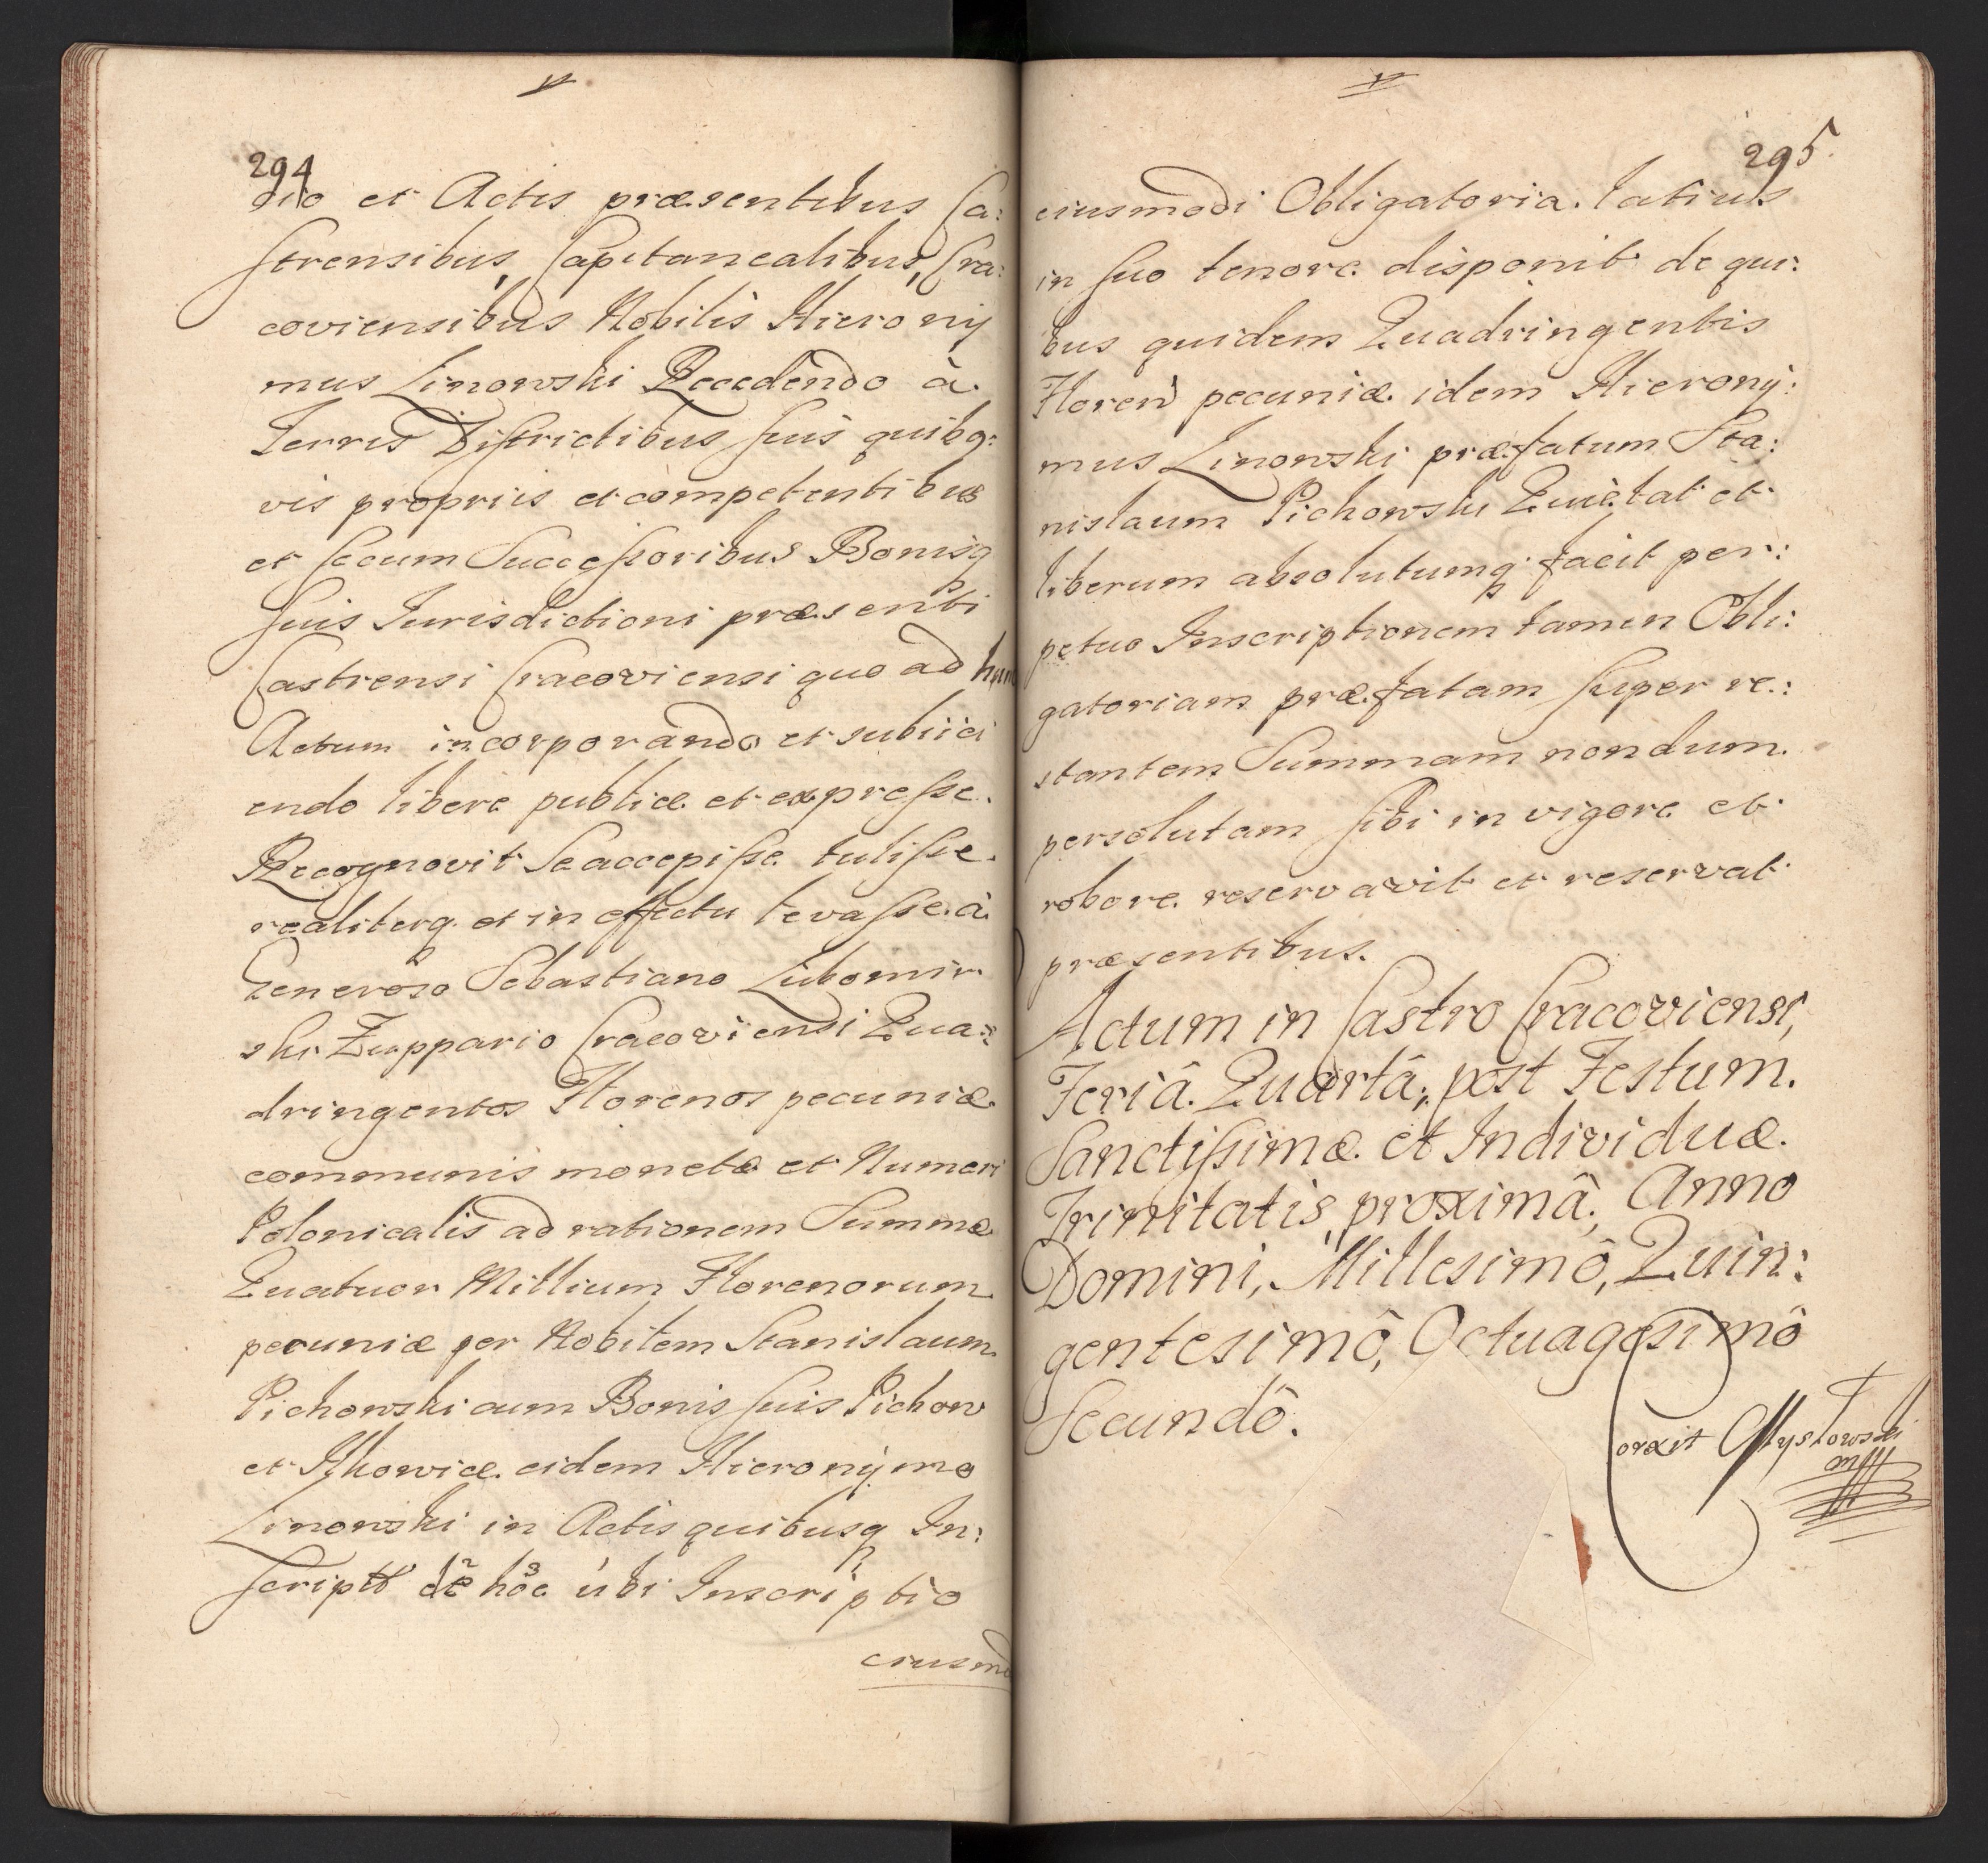 294
dio et Actis præsentibus Ca:
strensibus, Capitanealibus, Cra:
coviensibus Nobilis Hierony
mus Linowski Recedendo à
Terris Districtibus suis quibq:
vis propriis et competentibus
et secum Successoribus Bonisq
suis Jurisdictioni præsenti
Castrensi Cracoviensi quo ad hunc
Actum incorporando et subiici
endo libere publice et expresse.
Recognovit Se accepisse tulisse.
realiterq. et in effectu levasse. à
Generoso Sebastiano Lubomir
ski Zuppario Cracoviensi Qua:
dringentos Florenos pecuniæ
communis monetæ et Numeri
Polonicalis ad rationem Summæ
Quatuor Millium Florenorum
pecuniæ per Nobilem Stanislaum
Pichowski cum Bonis suis Pichow
et Ilkowice eidem Hieronymo
Linowski in Actis quibusq In:
script de hoc ubi Inscriptio
eiusmo
295
eiusmodi Obligatoria. latius
in suo tenore disponit de qui:
bus quidem Quadringentis
Floren pecuniæ idem Hierony:
mus Linowski præfatum Sta:
nislaum Pichowski Quietat et
liberum absolutumq facit per:
petuo Inscriptionem tamen Obli:
gatoriam præfatam super re:
stantem Summam nondum.
persolutam sibi in vigore et
robore. reservavit et reservat
præsentibus.
Actum in Castro Cracoviensi,
Feriâ. Quartâ, post Festum.
Sanctissimæ. et Individuæ.
Trinitatis, proximâ, Anno
Domini, Millesimô, Quin:
gentesimô, Octuagesimô
Secundô.
Corexit Mystowski
mpp